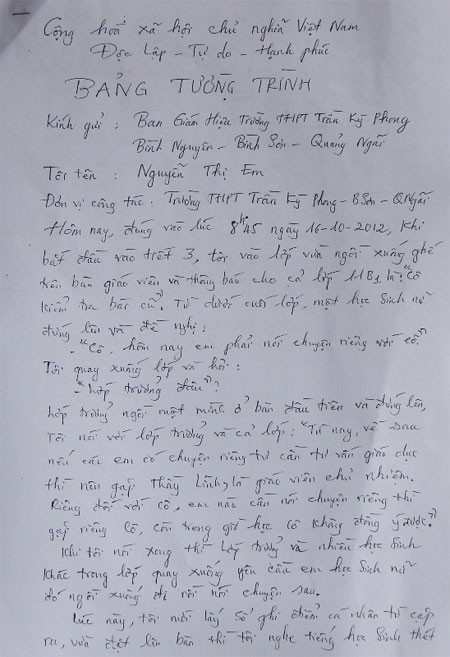 Cộng hoà xã hội chủ nghĩa Việt Nam
Độc Lập - Tự do - Hạnh phúc
BẢNG TƯỜNG TRÌNH
Kính gửi : Ban Giám Hiệu Trường THPT Trần Kỳ Phong
Bình Nguyên - Bình Sơn - Quảng Ngãi
Tôi tên : Nguyễn Thị Em
Đơn vị công tác : Trường THPT Trần Kỳ Phong - BSơn - QNgãi
Hôm nay, đúng vào lúc 8h45 ngày 16-10-2012, khi
bắt đầu vào tiết 3, tôi vào lớp vừa ngồi xuống ghế
trên bàn giáo viên và thông báo cho cả lớp 11B1 là: "Cô
kiểm tra bài cũ". Từ dưới cuối lớp, một học sinh nữ
đứng lên và đề nghị:
- "Cô, hôm nay em phải nói chuyện riêng với cô"
Tôi quay xuống lớp và hỏi:
- "Lớp trưởng đâu"?
Lớp trưởng ngồi một mình ở bàn đầu tiên và đứng lên,
Tôi nói với lớp trưởng và cả lớp: "Từ nay, về sau
nếu các em có chuyện riêng tư cần tư vấn giáo dục
thì nên gặp Thầy Linh, là giáo viên chủ nhiệm.
Riêng đối với cô, em nào cần nói chuyện riêng thì
gặp riêng cô, còn trong giờ học cô không đồng ý được".
Khi tôi nói xong thì lớp trưởng và nhiều học sinh
khác trong lớp quay xuống yêu cầu em học sinh nữ
đó ngồi xuống đi rồi nói chuyện sau.
Lúc này, tôi mới lấy sổ ghi điểm cá nhân từ cặp
ra, vừa đặt lên bàn thì tôi nghe tiếng học sinh thét